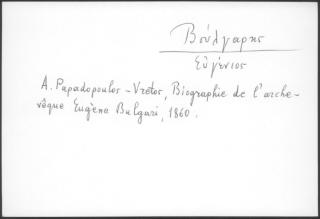 Βούλγαρης
Εὐγένιος
A. Papadopoulos - Vretos, Biographie de l'arche-
vêque Eugène Bulgari, 1860.